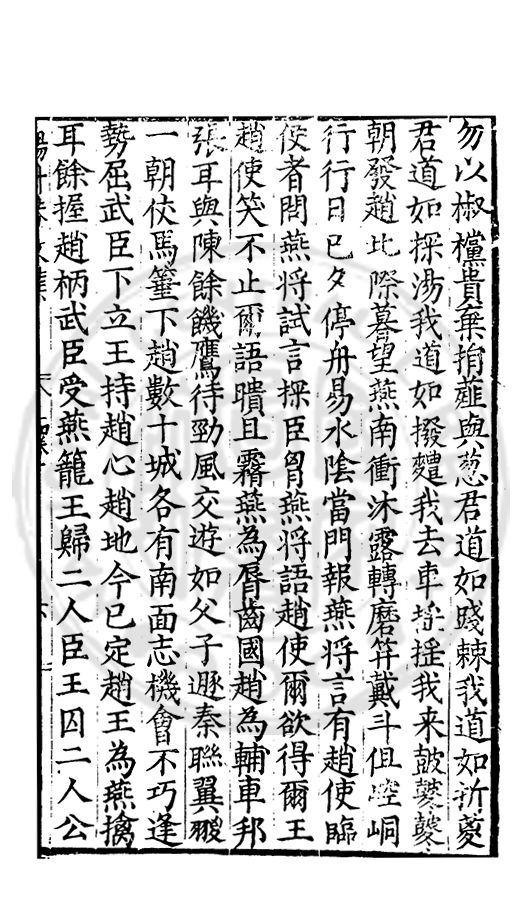 勿以椒欓貴棄捐薤與葱君道如踐棘我道如折麥
君道如探湯我道如撥麷我去車搖搖我来鼓鼕鼕
朝發趙北際暮望燕南衝沐露轉磨笄戴斗俎崆峒
行行日已夕停舟易水陰當門報燕將言有趙使臨
使者問燕將試言探臣胷燕將語趙使爾欲得爾王
趙使笑不止爾語瞶且霿燕為脣齒國趙為輔車邦
張耳與陳餘饑鷹待勁風交遊如父子遯秦聯翼翪
一朝仗馬箠下趙數十城各有南面志機會不巧逢
勢屈武臣下立王持趙心趙地今已定趙王為燕擒
耳餘握趙柄武臣受燕籠王歸二人臣王囚二人公